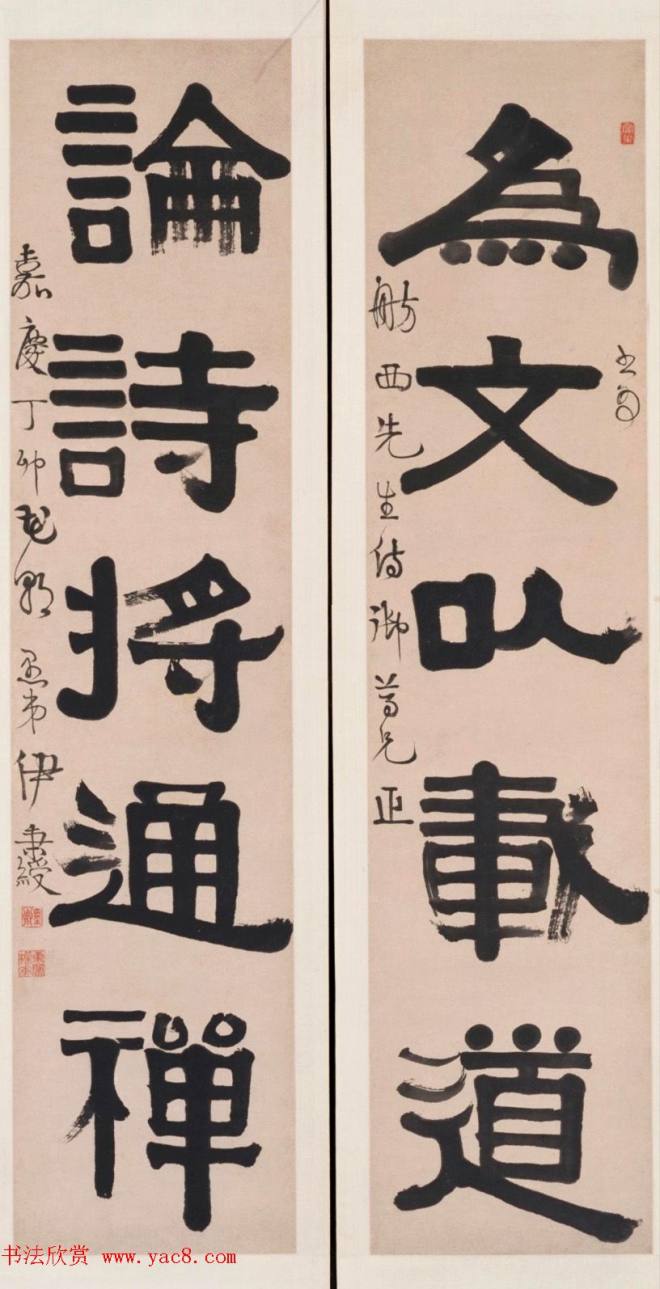 為文以載道
舫西先生侍御尊兄正
論詩將通禪
嘉慶丁卯花朝愚弟伊秉綬
书法欣赏 www.yac8.com